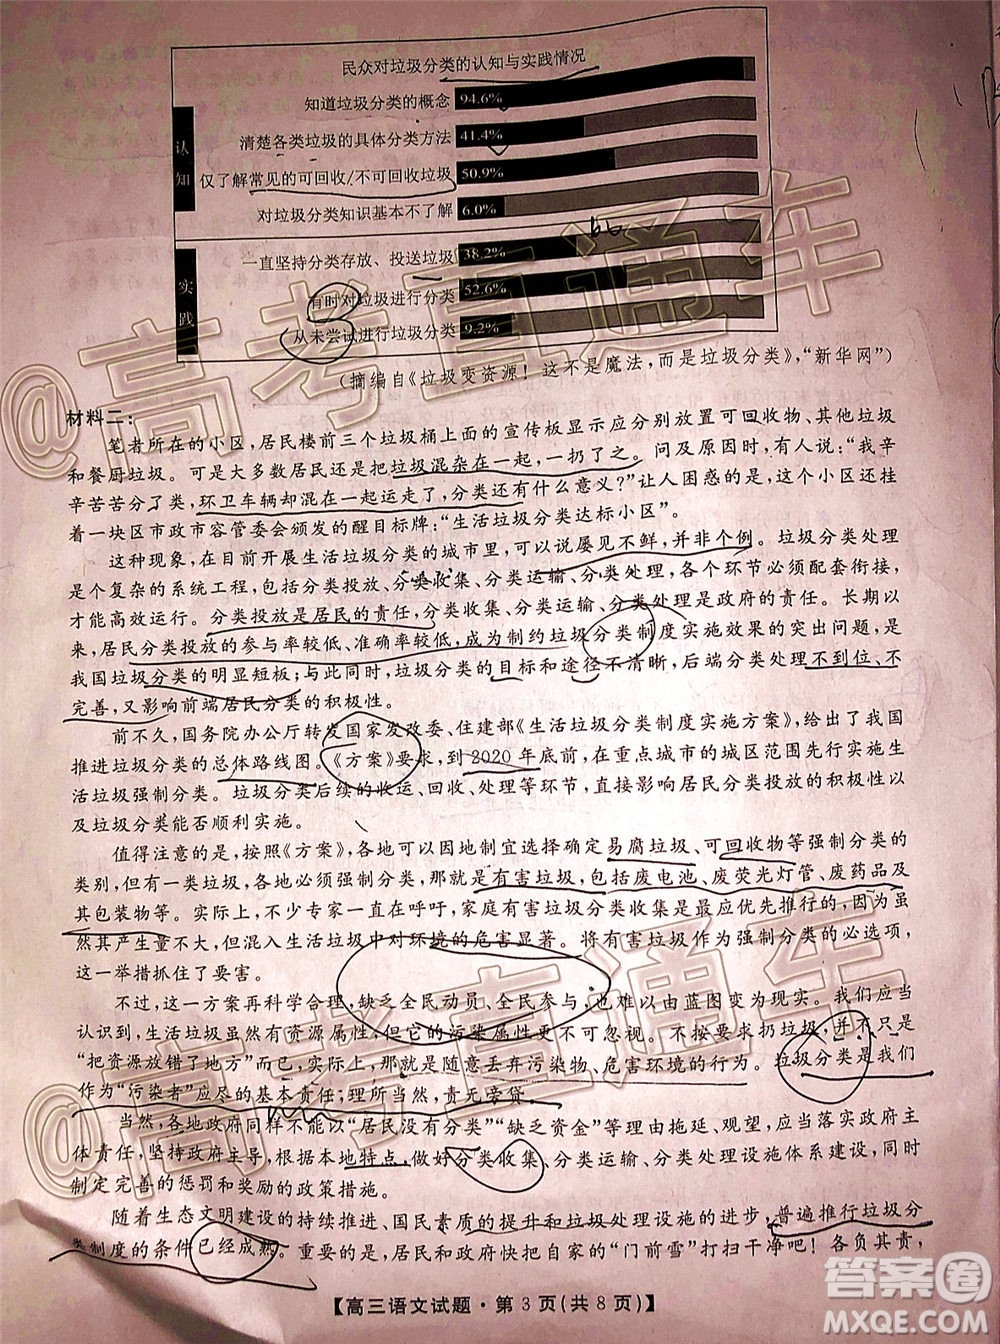 民众对垃圾分类的认知与实践情况
认知
知道垃圾分类的概念 94.6%
清楚各类垃圾的具体分类方法 41.4%
仅了解常见的可回收/不可回收垃圾 50.9%
对垃圾分类知识基本不了解 6.0%
实践
一直坚持分类存放、投送垃圾 38.2%
有时对垃圾进行分类 52.6%
从未尝试进行垃圾分类 9.2%
(摘编自《垃圾变资源！这不是魔法，而是垃圾分类》，“新华网”)
材料二：
笔者所在的小区，居民楼前三个垃圾桶上面的宣传板显示应分别放置可回收物、其他垃圾
和餐厨垃圾。可是大多数居民还是把垃圾混杂在一起，一扔了之。问及原因，有人说：“我辛
辛苦苦分了类，环卫车辆却混在一起运走了，分类还有什么意义？”让人困惑的是，这个小区还挂
着一块区市政市容管委会颁发的醒目标牌：“生活垃圾分类达标小区”。
这种现象，在目前开展生活垃圾分类的城市里，可以说屡见不鲜，并非个例。垃圾分类处理
是个复杂的系统工程，包括分类投放、分类收集、分类运输、分类处理，各个环节必须配套衔接，
才能高效运行。分类投放是居民的责任，分类收集、分类运输、分类处理是政府的责任。长期以
来，居民分类投放的参与率较低、准确率较低，成为制约垃圾分类制度实施效果的突出问题，是
我国垃圾分类的明显短板；与此同时，垃圾分类的目标和途径不清晰，后端分类处理不到位、不
完善，又影响前端居民分类的积极性。
前不久，国务院办公厅转发国家发改委、住建部《生活垃圾分类制度实施方案》，给出了我国
推进垃圾分类的总体路线图。《方案》要求，到2020年底前，在重点城市的城区范围先行实施生
活垃圾强制分类。垃圾分类后续的收运、回收、处理等环节，直接影响居民参与的积极性，以
及垃圾分类能否顺利实施。
值得注意的是，按照《方案》，各地可以因地制宜选择确定易腐垃圾、可回收物等强制分类的
类别，但有一类垃圾，各地必须强制分类，那就是有害垃圾，包括废电池、废荧光灯管、废药品及
其包装物等。实际上，不少专家一直在呼吁，家庭有害垃圾分类收集是最应优先推行的，因为虽
然其产生量不大，但混入生活垃圾中对环境的危害显著。将有害垃圾作为强制分类的必选项，
这一举措抓住了要害。
不过，这一方案再科学合理，缺乏全民动员、全民参与，也难以由蓝图变为现实。我们应当
认识到，生活垃圾虽然有资源属性，但它的污染属性更不可忽视。不按要求扔垃圾，并不只是
“把资源放错了地方”而已，实际上，那就是随意丢弃污染物、危害环境的行为。垃圾分类是我们
作为“污染者”应尽的基本责任；理所当然，责无旁贷。
当然，各地政府同样不能以“居民没有分类”“缺乏资金”等为由拖延、观望，应落实政府主
体责任，坚持政府主导，根据本地特点，做好分类收集、分类运输、分类处理设施体系建设，同时
制定完善的惩罚和奖励的政策措施。
随着生态文明建设的持续推进、国民素质的提升和垃圾处理设施的进步，普遍推行垃圾分
类制度的条件已经成熟。重要的是，居民和政府快把自家的“门前雪”打扫干净吧！各负其责，
【高三语文试题·第3页(共8页)】
@高考直通车
@高考直通车
答案圈
MXQE.COM